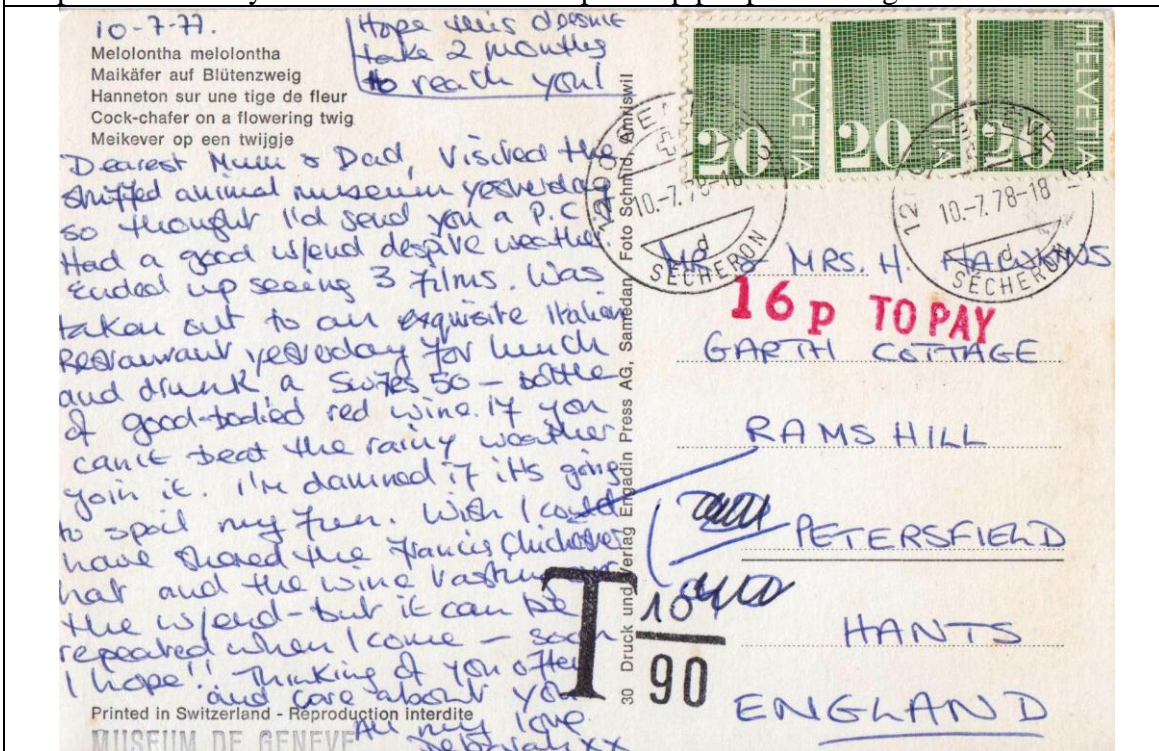 10-7-77.
Hope this doesnt
take 2 months
to reach you!
Melolontha melolontha
Maikäfer auf Blütenzweig
Hanneton sur une tige de fleur
Cock-chafer on a flowering twig
Meikever op een twijgje
Dearest Mum & Dad, Visited the
stuffed animal museum yesterday
so thought I'd send you a P.C.
Had a good w/end despite weather.
Ended up seeing 3 films. Was
taken out to an exquisite Italian
Restaurant yesterday for lunch
and drunk a 50 - bottle
of good-bodied red wine. If you
can't beat the rainy weather
join it. I'm damned if it's going
to spoil my fun. Wish I could
have shared the Francis Chichester
hat and the wine
the w/end - but it can be
repeated when I come - soon
I hope!! Thinking of you often
and care about you
All my love
Deborah xx
Printed in Switzerland - Reproduction interdite
MUSEUM DE GENEVE
30 Druck und Verlag Engadin Press AG, Samedan Foto Schmid, Amriswil
HELVETIA 20
HELVETIA 20
HELVETIA 20
10.-7.78-18
SÉCHERON
d
12
10.-7.78-18
SÉCHERON
d
MR & MRS. H. HAWKINS
16p TO PAY
GARTH COTTAGE
RAMS HILL
PETERSFIELD
HANTS
ENGLAND
T
90